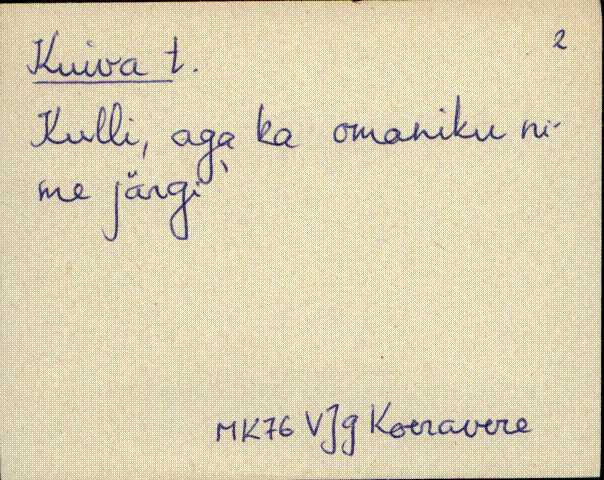 2
Kuiva t.
Kulli, aga ka omaniku ni-
me järgi
MK76 VJg Koeravere